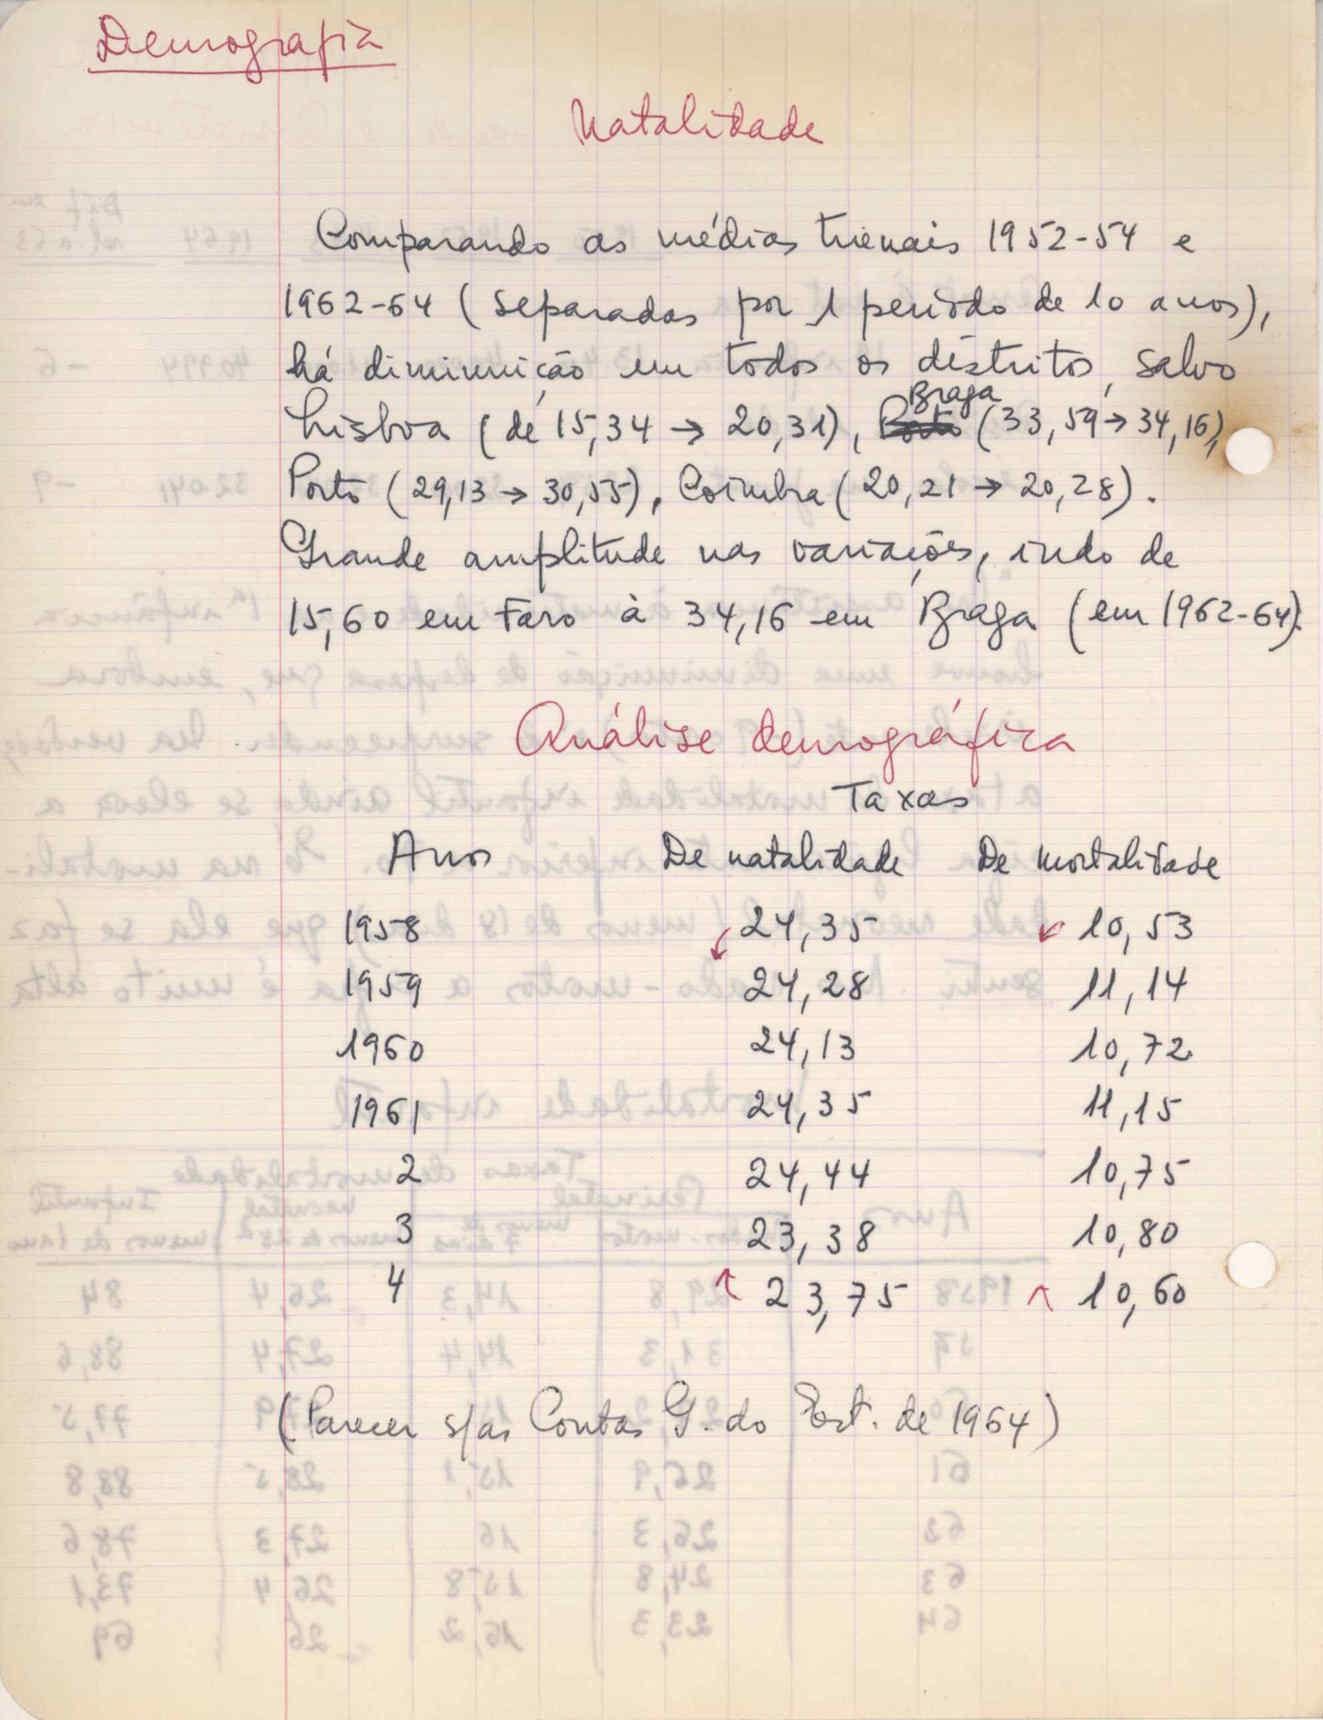 Demografia
Natalidade
Comparando as médias trienais 1952-54 e
1962-64 (separadas por 1 período de 10 anos),
há diminuição em todos os distritos, salvo
Lisboa (de 15,34 → 20,31), Porto Braga (33,59 → 34,16),
Porto (29,13 → 30,55), Coimbra (20,21 → 20,28).
Grande amplitude nas variações, indo de
15,60 em Faro à 34,16 em Braga (em 1962-64).
Análise demográfica
Taxas
Anos De natalidade De mortalidade
1958 24,35 10,53
1959 24,28 11,14
1960 24,13 10,72
1961 24,35 11,15
2 24,44 10,75
3 23,38 10,80
4 23,75 10,60
(Parecer s/as Contas G. do Est. de 1964)